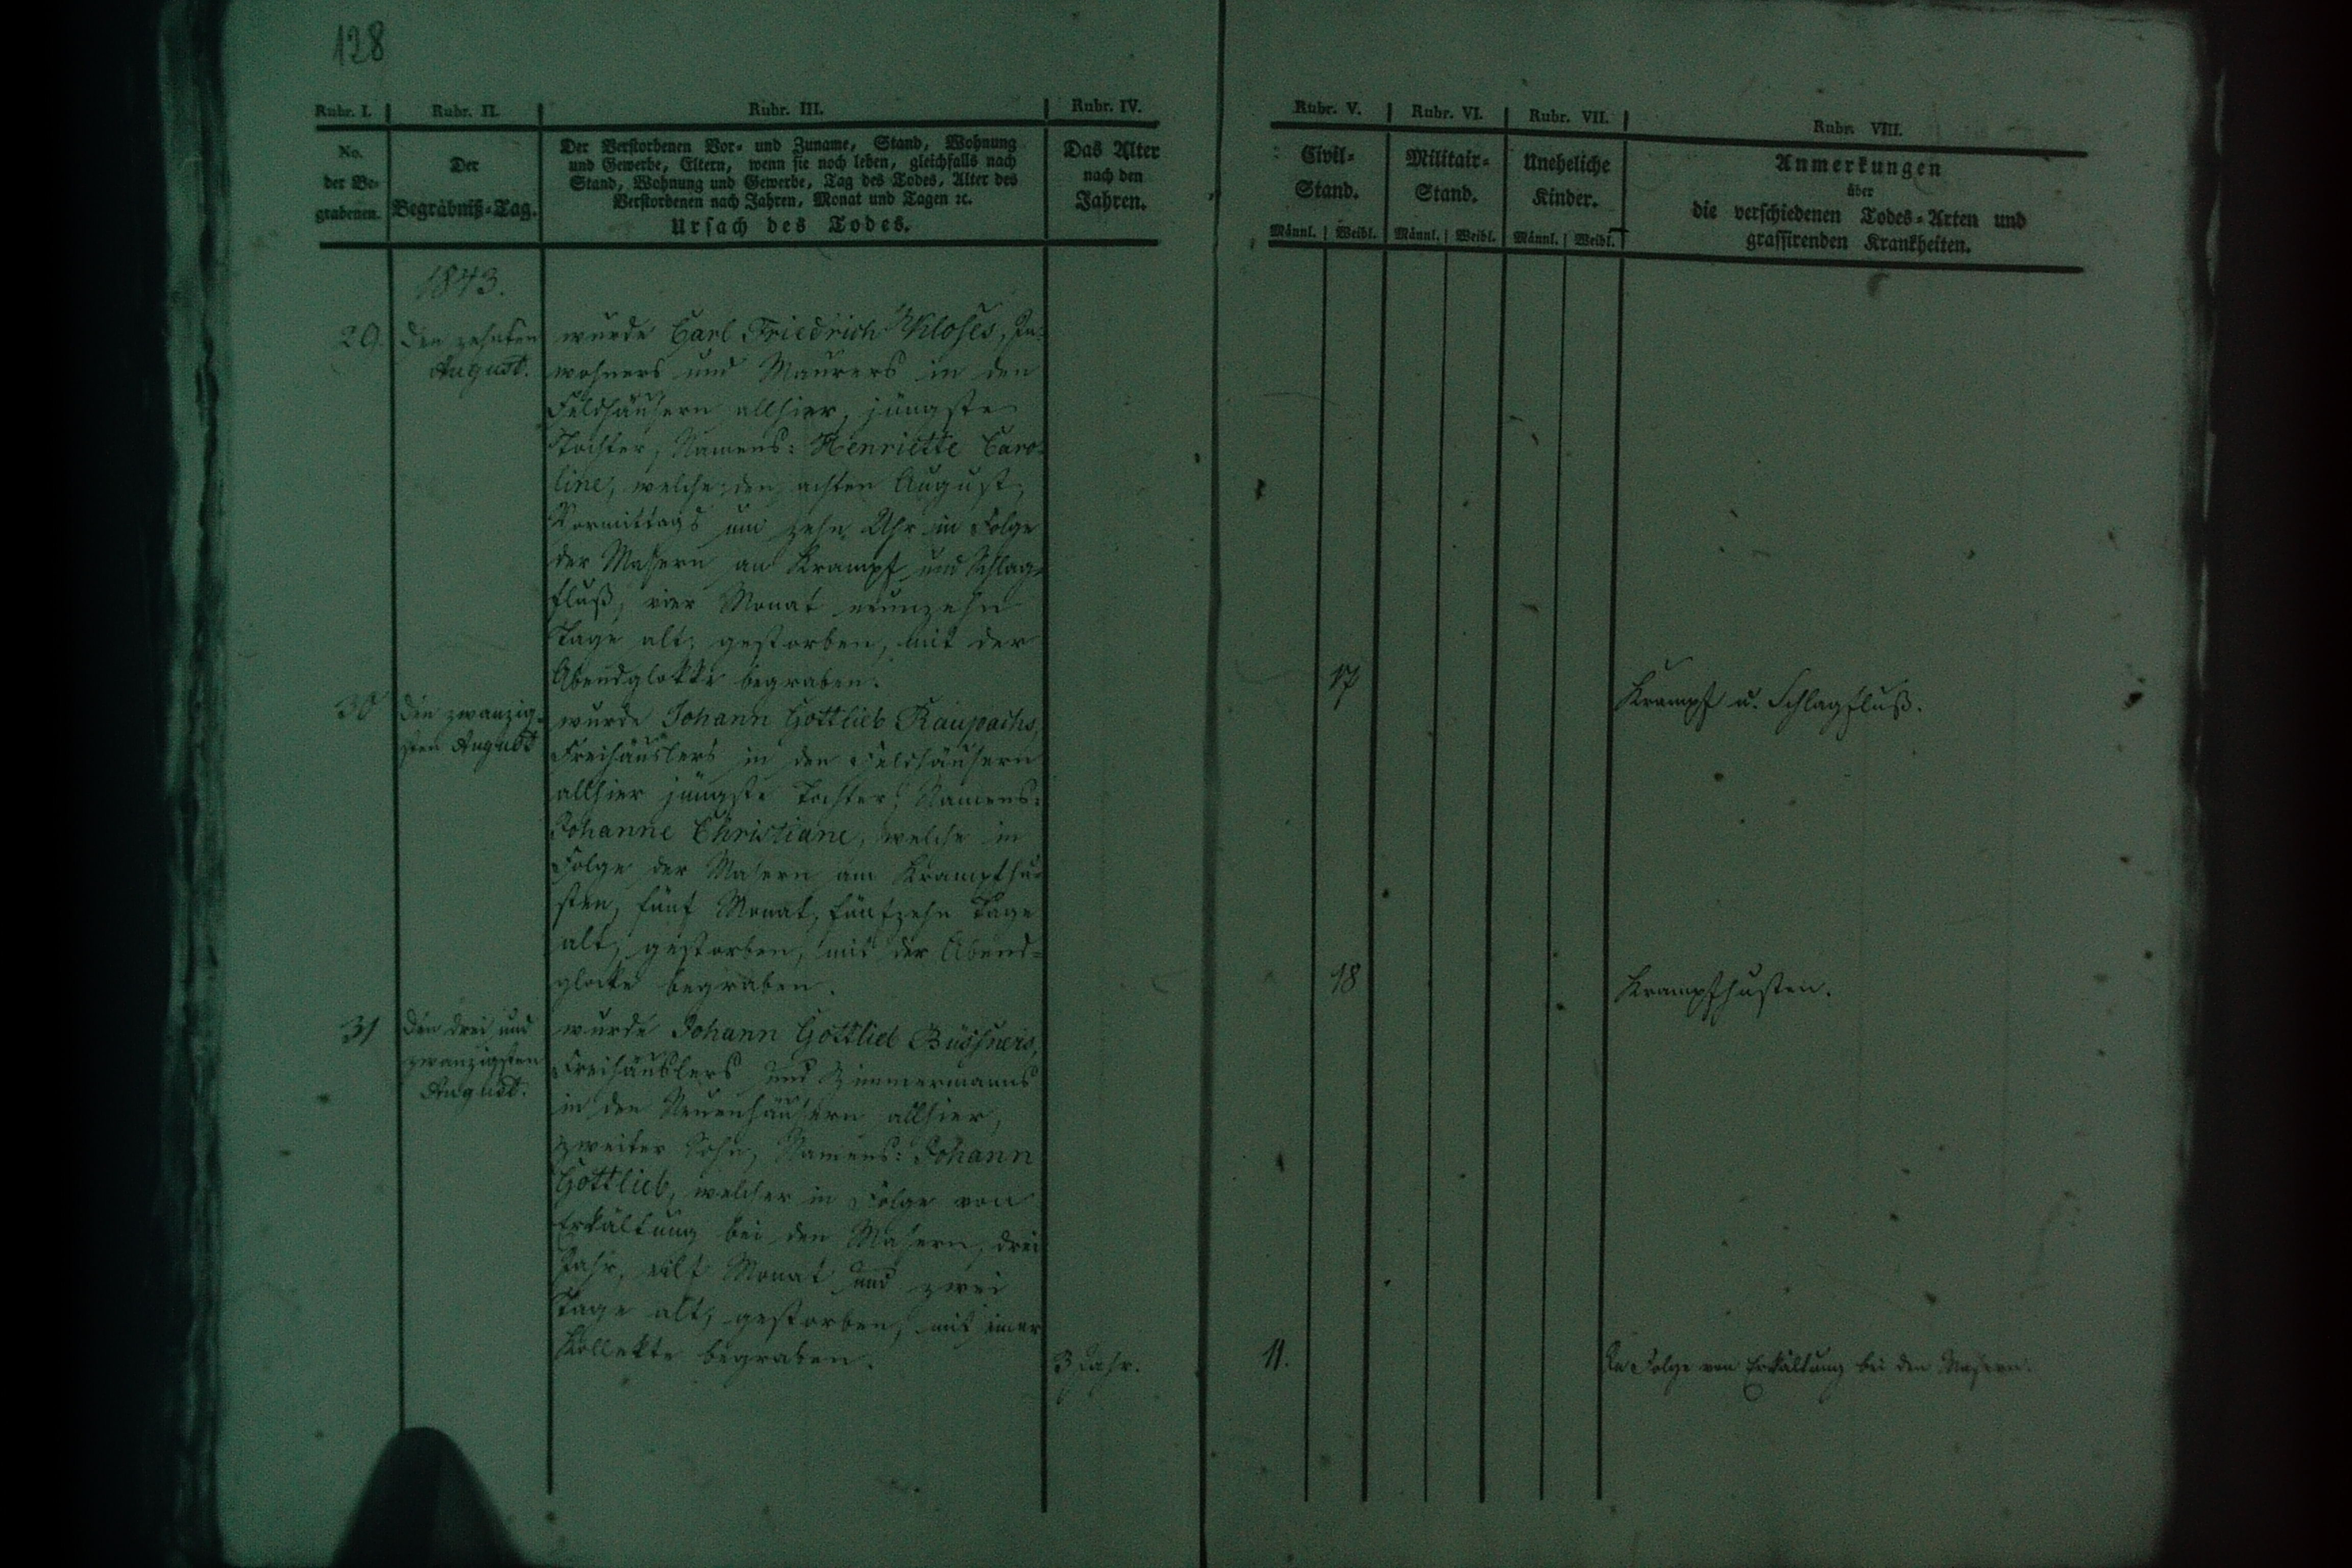 128
Rubr. I. Rubr. II. Rubr. III. Rubr. IV. Rubr. V. Rubr. VI. Rubr. VII. Rubr. VIII.
No.
der Be-
grabenen.
Der
Begräbniß-Tag.
Der Verstorbenen Vor- und Zuname, Stand, Wohnung
und Gewerbe, Eltern, wenn sie noch leben, gleichfalls nach
Stand, Wohnung und Gewerbe, Tag des Todes, Alter des
Verstorbenen nach Jahren, Monat und Tagen ꝛc.
Ursach des Todes.
Das Alter
nach den
Jahren.
Civil-
Stand.
Männl. Weibl.
Militair-
Stand.
Männl. Weibl.
Uneheliche
Kinder.
Männl. Weibl.
Anmerkungen
über
die verschiedenen Todes-Arten und
grassirenden Krankheiten.
1843.
29.
den zehnten
August.
wurde Carl Friedrich Kloses, In-
wohners und Maurers in den
Feldhäusern allhier, jüngste
Tochter, Namens: Henriette Caro-
line, welche den achten August,
Vormittags um zehn Uhr in Folge
der Masern an Krampf und Schlag-
fluß, vier Monat neunzehn
Tage alt, gestorben, mit der
Abendglokke begraben.
17
Krampf u. Schlagfluß.
30
den zwanzig-
sten August
wurde Johann Gottlieb Raupachs,
Freihäuslers in den Feldhäusern
allhier jüngste Tochter, Namens:
Johanne Christiane, welche in
Folge der Masern am Krampfhu-
sten, fünf Monat, fünfzehn Tage
alt, gestorben, mit der Abend-
glocke begraben.
18
Krampfhusten.
31
den drei und
zwanzigsten
August.
wurde Johann Gottlieb
Freihäuslers und Zimmermanns
in den Neuenhäusern allhier,
zweiter Sohn, Namens: Johann
Gottlieb, welcher in Folge von
Erkältung bei den Masern, drei
Jahr, eilf Monat und zwei
Tage alt, gestorben, mit einer
Kollekte begraben.
3 Jahr.
11.
In Folge von Erkältung bei den Masern.